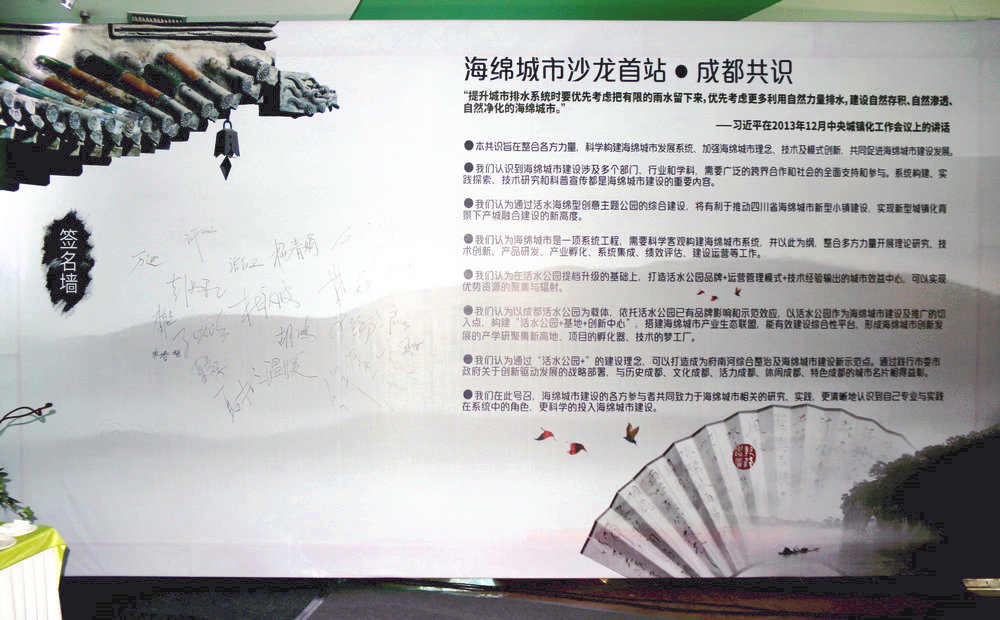 海绵城市沙龙首站●成都共识
“提升城市排水系统时要优先考虑把有限的雨水留下来，优先考虑更多利用自然力量排水，建设自然存积、自然渗透、
自然净化的海绵城市。”
——习近平在2013年12月中央城镇化工作会议上的讲话
●本共识旨在整合各方力量，科学构建海绵城市发展系统、加强海绵城市理念、技术及模式创新，共同促进海绵城市建设发展。
●我们认识到海绵城市建设涉及多个部门、行业和学科，需要广泛的跨界合作和社会的全面支持和参与。系统构建、实
践探索、技术研究和科普宣传都是海绵城市建设的重要内容。
●我们认为通过活水海绵型创意主题公园的综合建设，将有利于推动四川省海绵城市新型小镇建设，实现新型城镇化背
景下产城融合建设的新高度。
●我们认为海绵城市是一项系统工程，需要科学客观构建海绵城市系统，并以此为纲，整合多方力量开展理论研究、技
术创新、产品研发、产业孵化、系统集成、绩效评估、建设运营等工作。
●我们认为在活水公园提档升级的基础上，打造活水公园品牌+运营管理模式+技术经验输出的城市效益中心，可以实现
优势资源的聚集与辐射。
●我们认为以成都活水公园为载体，依托活水公园已有品牌影响和示范效应，以活水公园作为海绵城市建设及推广的切
入点，构建“活水公园+基地+创新中心”，搭建海绵城市产业生态联盟，能有效建设综合性平台，形成海绵城市创新发
展的产学研聚集新高地、项目的孵化器、技术的梦工厂。
●我们认为通过“活水公园+”的建设理念，可以打造成为府南河综合整治及海绵城市建设新示范点。通过践行市委市
政府关于创新驱动发展的战略部署，与历史成都、文化成都、活力成都、休闲成都、特色成都的城市名片相得益彰。
●我们在此号召，海绵城市建设的各方参与者共同致力于海绵城市相关的研究、实践，更清晰地认识到自己专业与实践
在系统中的角色，更科学的投入海绵城市建设。
签名墙